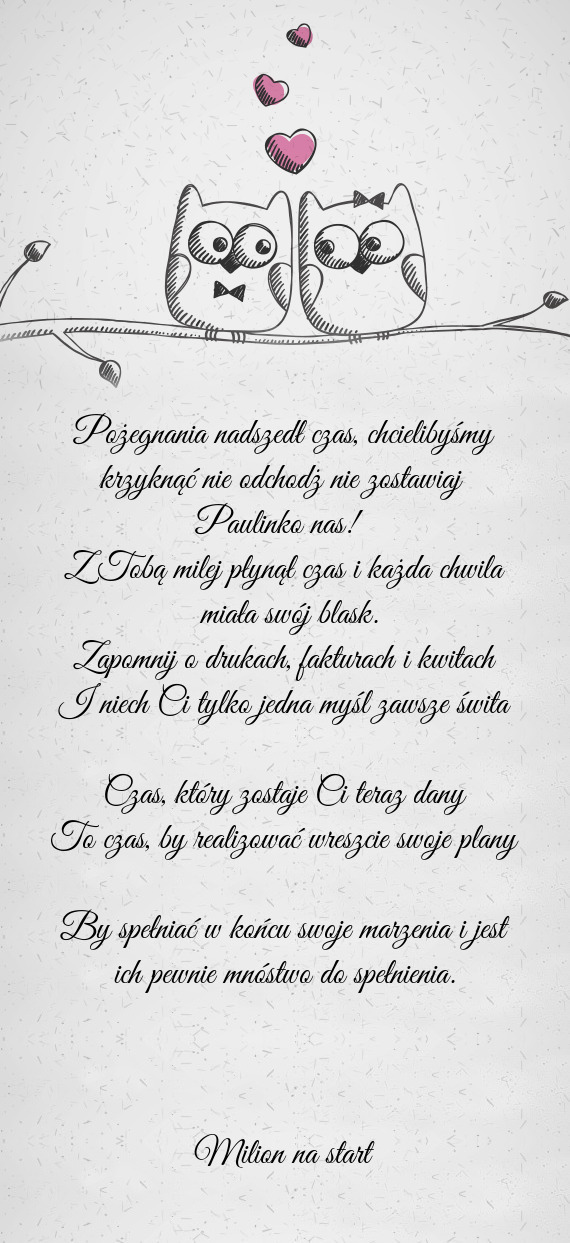 Pożegnania nadszedł czas, chcielibyśmy
krzyknąć nie odchodż nie zostawiaj
Paulinko nas!
Z Tobą milej płynął czas i każda chwila
miała swój blask.
Zapomnij o drukach, fakturach i kwitach
I niech Ci tylko jedna myśl zawsze świta
Czas, który zostaje Ci teraz dany
To czas, by realizować wreszcie swoje plany
By spełniać w końcu swoje marzenia i jest
ich pewnie mnóstwo do spełnienia.
Milion na start